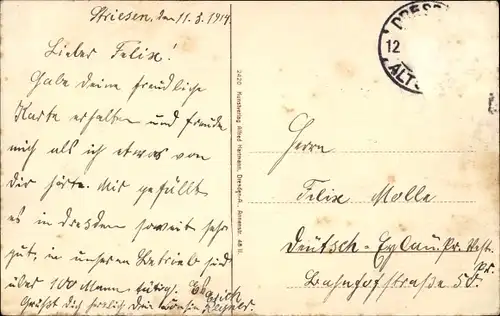 Striesen, den 11.3.1914.
Lieber Felix!
Habe deine freundliche
Karte erhalten und freude
mich als ich etwas von
Dir hörte. Mir gefällt
es in Dresden soweit sehr
gut, in unseren Betrieb sind
über 100 Mann tätig. Es
Grüßt Dich herzlich Dein
2420 Kunstverlag Alfred Hartmann, Dresden-A., Annenstr. 48 II.
DRESD
12
ALTS
Herrn
Felix Molle
Deutsch-Eylau Pr. West.
Pr.
Bahnhofstraße 5